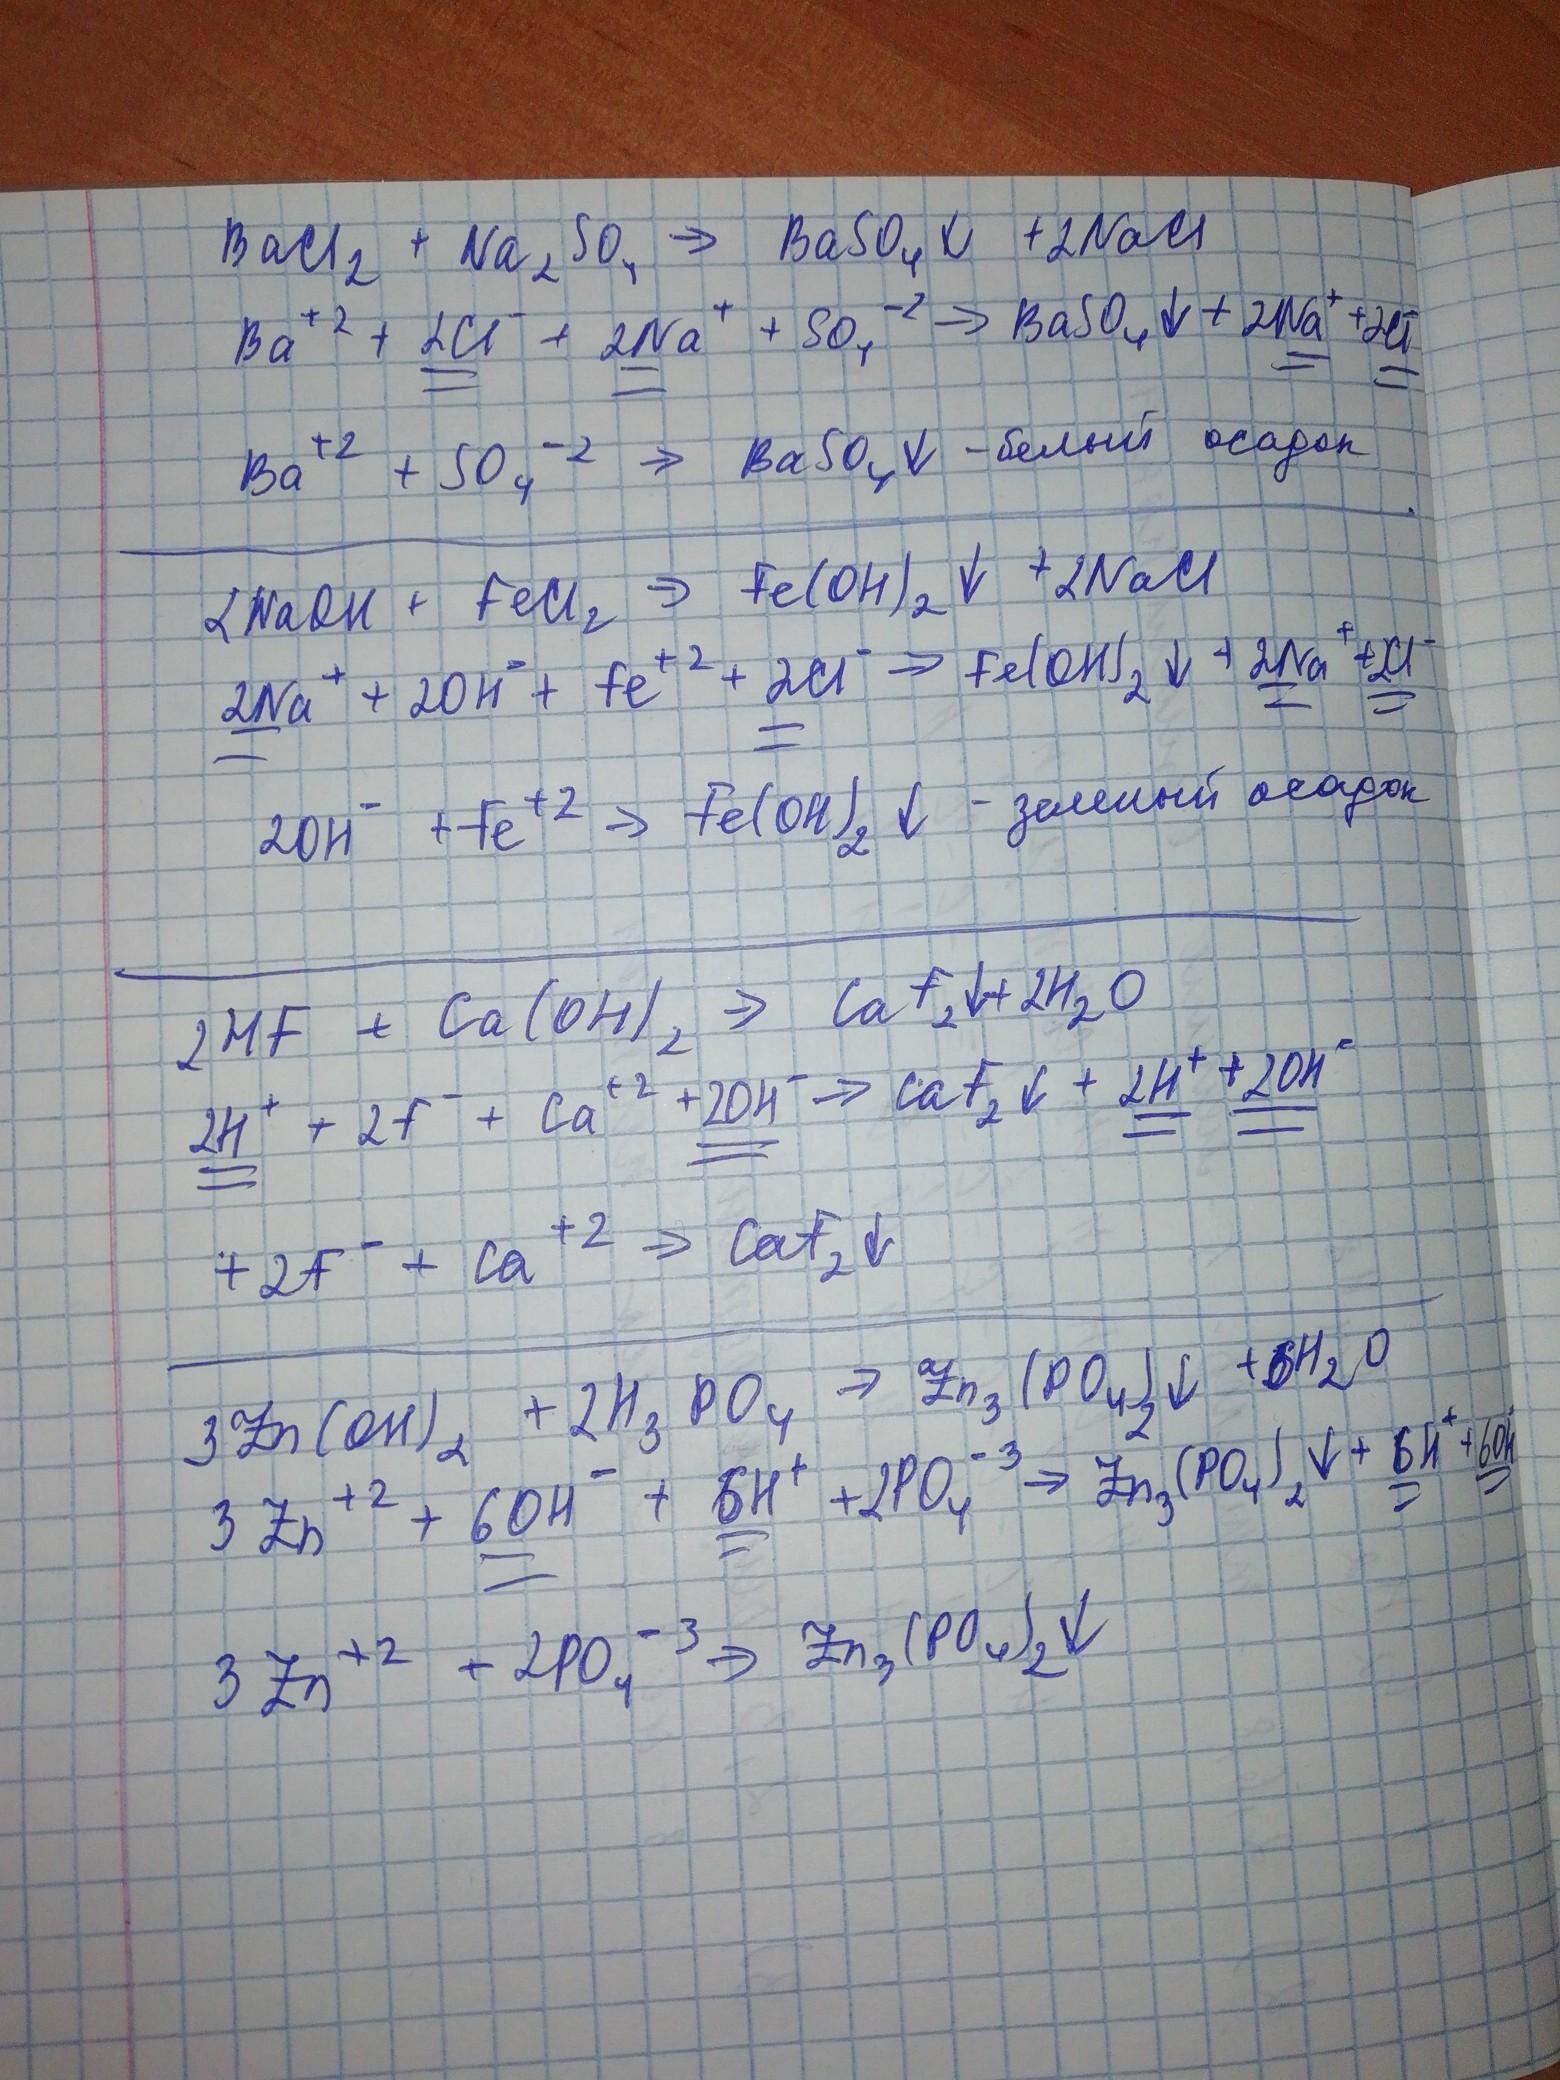 BaCl₂ + Na₂SO₄ ⇒ BaSO₄↓ + 2NaCl
Ba⁺² + 2Cl⁻ + 2Na⁺ + SO₄⁻² ⇒ BaSO₄↓ + 2Na⁺ + 2Cl⁻
Ba⁺² + SO₄⁻² ⇒ BaSO₄↓ - белый осадок
2NaOH + FeCl₂ ⇒ Fe(OH)₂↓ + 2NaCl
2Na⁺ + 2OH⁻ + Fe⁺² + 2Cl⁻ ⇒ Fe(OH)₂↓ + 2Na⁺ + 2Cl⁻
2OH⁻ + Fe⁺² ⇒ Fe(OH)₂↓ - зеленый осадок
2HF + Ca(OH)₂ ⇒ CaF₂↓ + 2H₂O
2H⁺ + 2F⁻ + Ca⁺² + 2OH⁻ ⇒ CaF₂↓ + 2H⁺ + 2OH⁻
+ 2F⁻ + Ca⁺² ⇒ CaF₂↓
3Zn(OH)₂ + 2H₃PO₄ ⇒ Zn₃(PO₄)₂↓ + 6H₂O
3Zn⁺² + 6OH⁻ + 6H⁺ + 2PO₄⁻³ ⇒ Zn₃(PO₄)₂↓ + 6H⁺ + 6OH⁻
3Zn⁺² + 2PO₄⁻³ ⇒ Zn₃(PO₄)₂↓